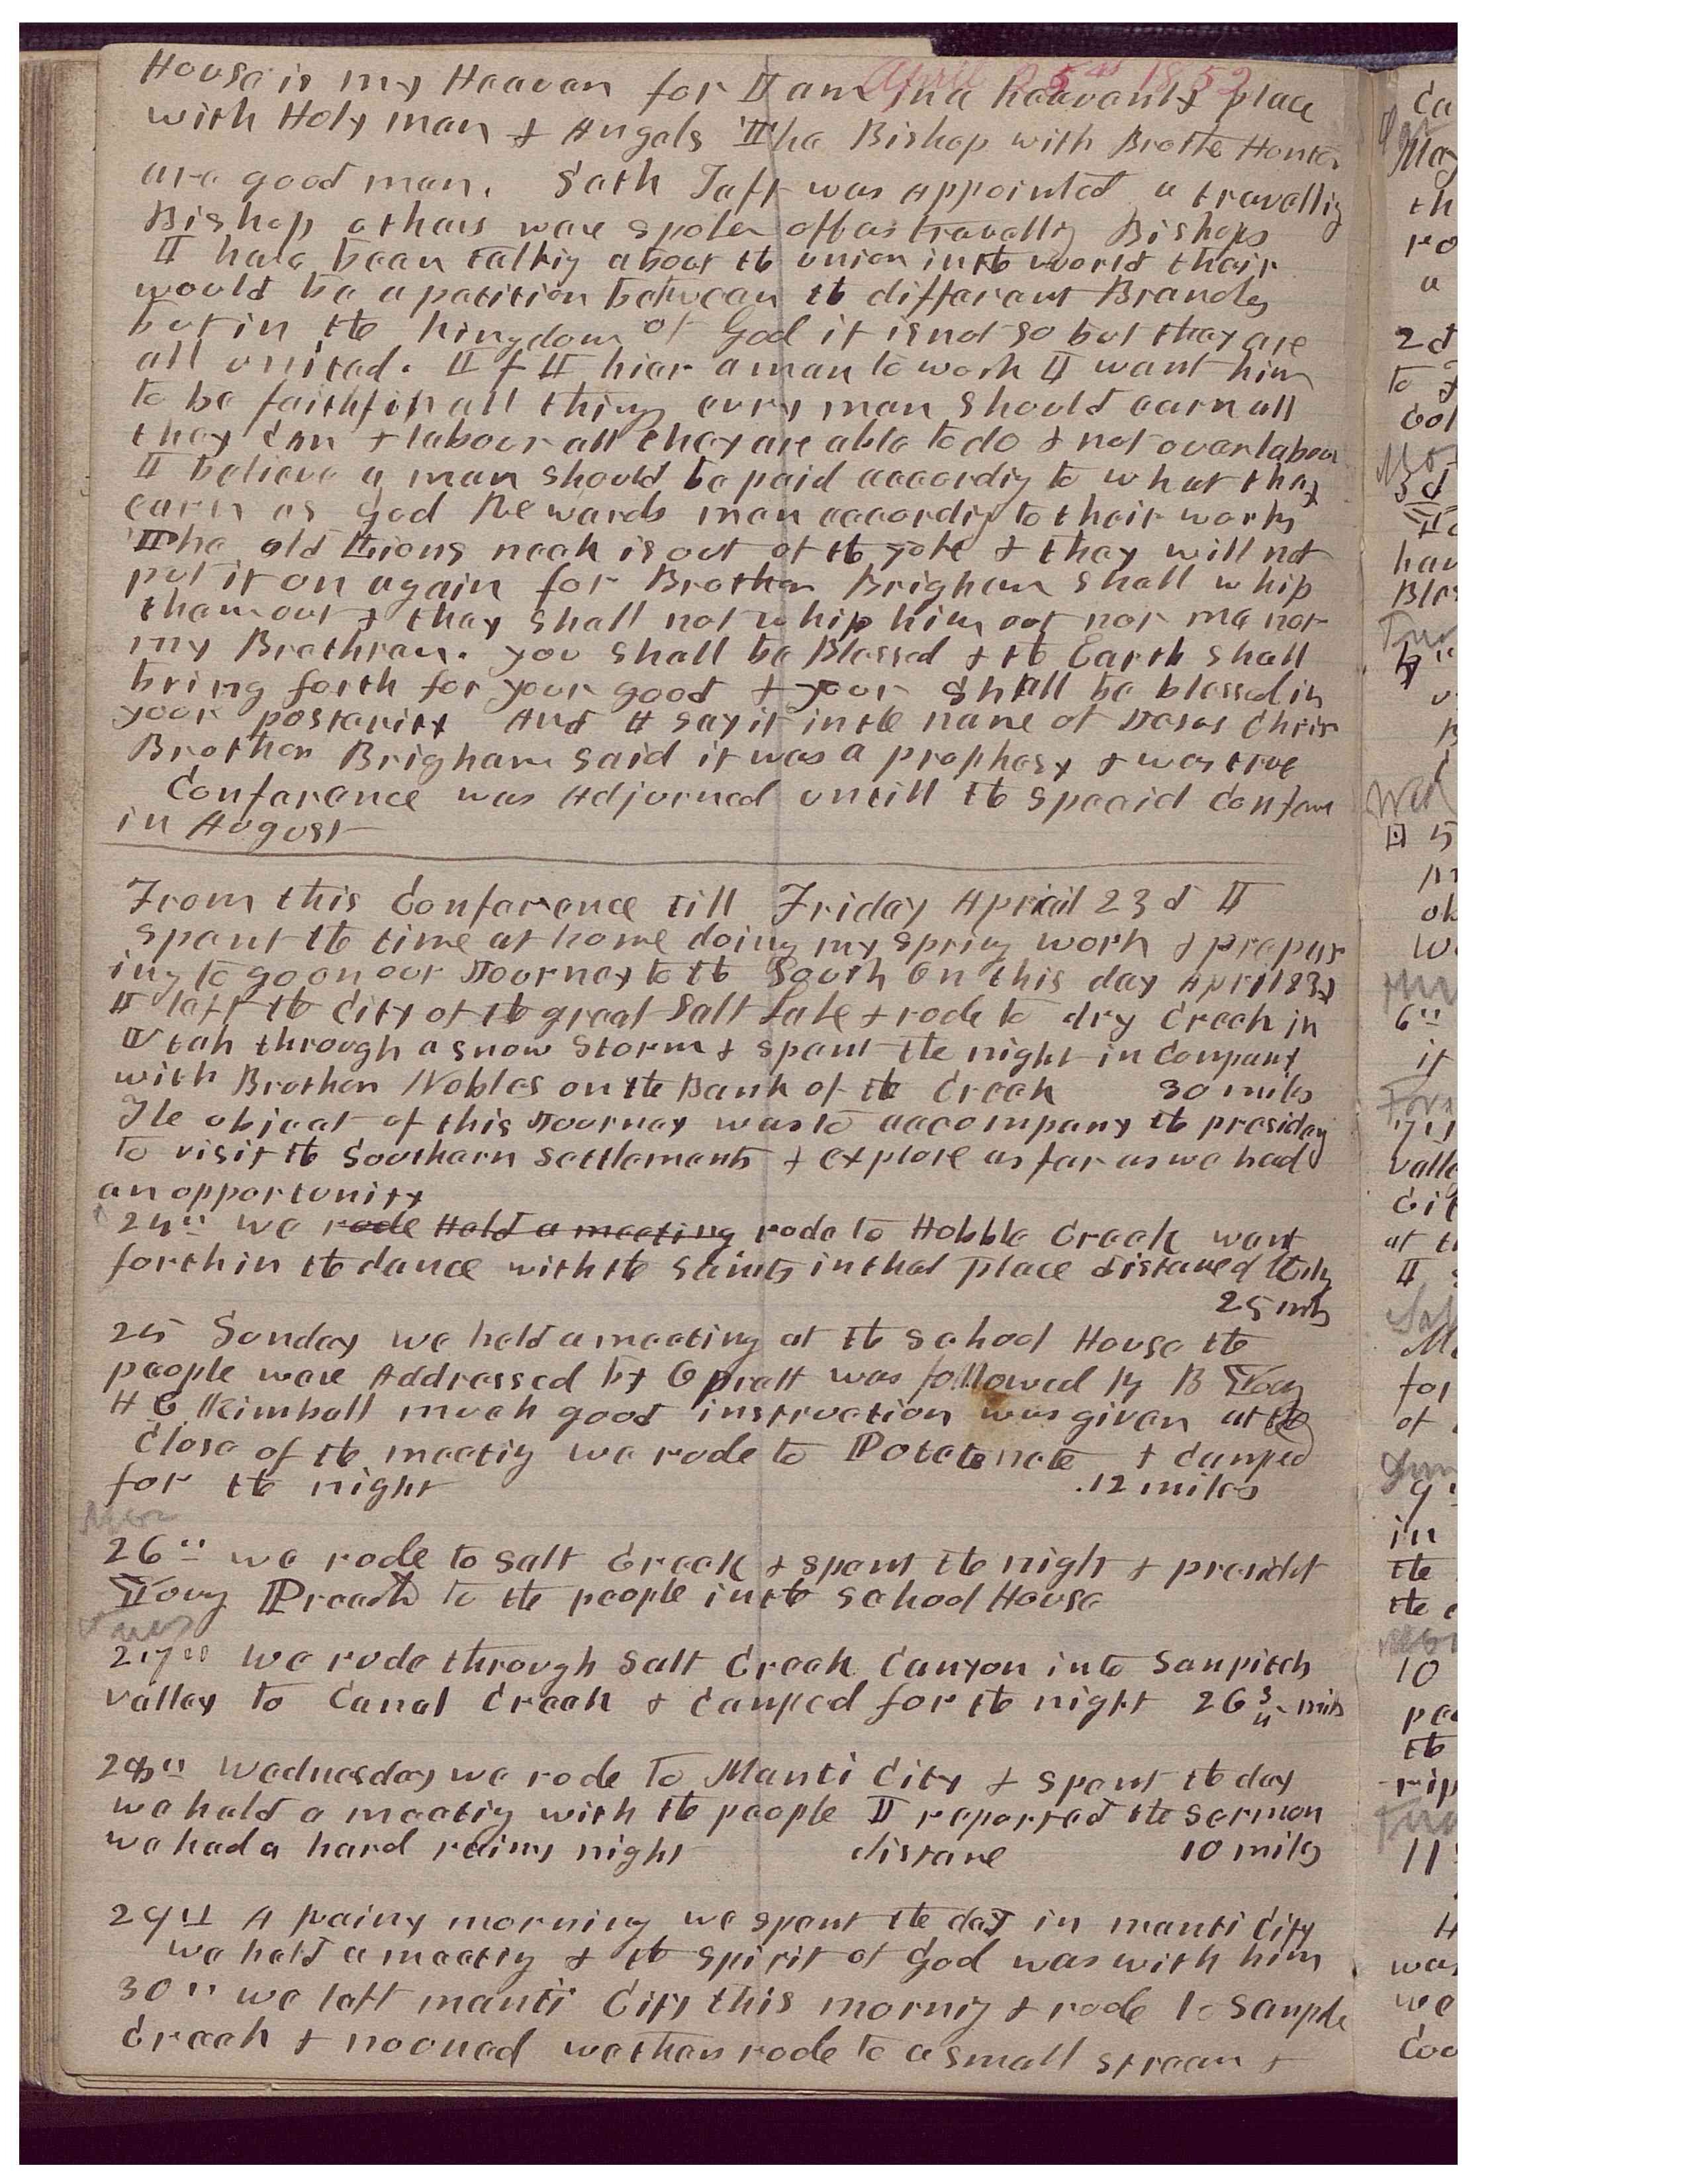 April 25th 1852
House is my Heaven for I am in a heavenly place
with Holy men & Angels The Bishop with Brother Hunter
are good men. Seth Taft was appointed a travellig
Bishop others were spoken off as travellig Bishops
I have been talkig about the union in the world their
would be a patition between the different Branches
but in the kingdom of God it is not so but they are
all united. If I hier a man to work I want him
to be faithful in all things evry man should earn all
they can & labour all they are able to do & not over labour
I believe a man should be paid accordig to what they
earn as God Rewards men accordig to their works
The old Lions neck is out of the yoke & they will not
put it on again for Brother Brigham shall whip
them out & they shall not whip him out nor me nor
my Brethren. you shall be Blessed & the Earth shall
bring forth for your good & your shall be blessed in
your posterity And I say it in the name of Jesus Christ
Brother Brigham said it was a prophesy & was true
Conference was Adjorned untill the special Confere
in August
From this Conference till Friday April 23d I
spent the time at home doing my spring work & prepar
ing to go on our Journey to the South On this day April 23d
I left the City of the great Salt Lake & rode to dry Creek in
Utah through a snow Storm & spent the night in Company
with Brother Nobles on the Bank of the Creek 30 miles
The object of this Journey was to accompany the presidency
to visit the Southern Settlements & explore as far as we had
an opportunity
24th we rode Held a meeting rode to Hobble Creek went
forth in the dance with the Saints in that place distance
25 mls
25 Sunday we held a meeting at the School House the
people were Addressed by O pratt was followed by B Young
H C Kimball much good instruction was given at the
Close of the meetig we rode to Poteetenete & camped
for the night 12 miles
Mon
26th we rode to Salt Creek & spent the night & presidet
Young Preach to the people in the School House
Tues
27th we rode through Salt Creek Canyon into Sanpitch
valley to Canal Creek & camped for the night 26 3/4 mils
28th Wednesday we rode to Manti City & spent the day
we held a meetig with the people I reported the Sermon
we had a hard rainy night distane 10 miles
29th A rainy morning we spent the day in manti City
we held a meetig & the spirit of God was with him
30th we left manti City this mornig & rode to Sanpitch
Creek & nooned we then rode to a small stream &